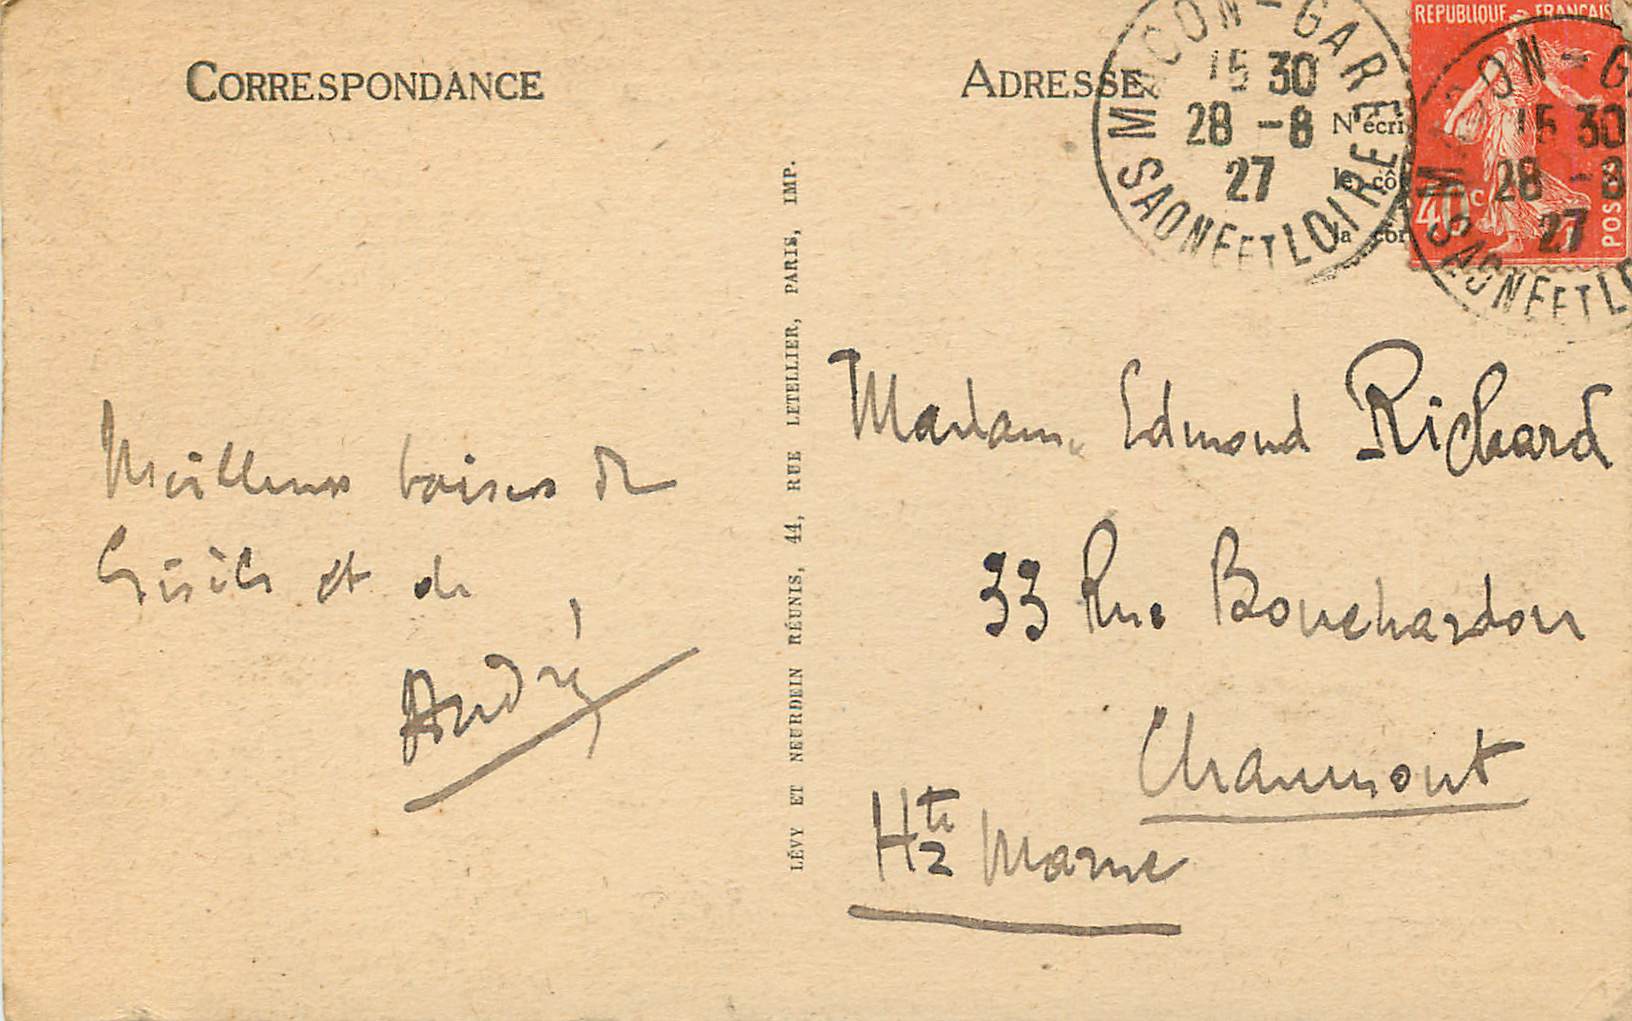 CORRESPONDANCE
Meilleurs baisers de
Gisèle et de
André
LÉVY ET NEURDEIN RÉUNIS, 44, RUE LETELLIER, PARIS, IMP.
ADRESSE
N'écri
le cô
la cor
MACON-GARE
15 30
28 -8
27
SAONE ET LOIRE
REPUBLIQUE FRANÇAIS
40c
POS
MACON-GA
15 30
28 -8
27
SAONE ET LO
Madame Edmond Richard
33 Rue Bouchardon
Chaumont
Hte Marne